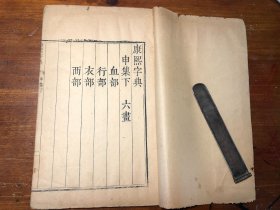 康熙字典
申集下　六畫
血部
行部
衣部
襾部